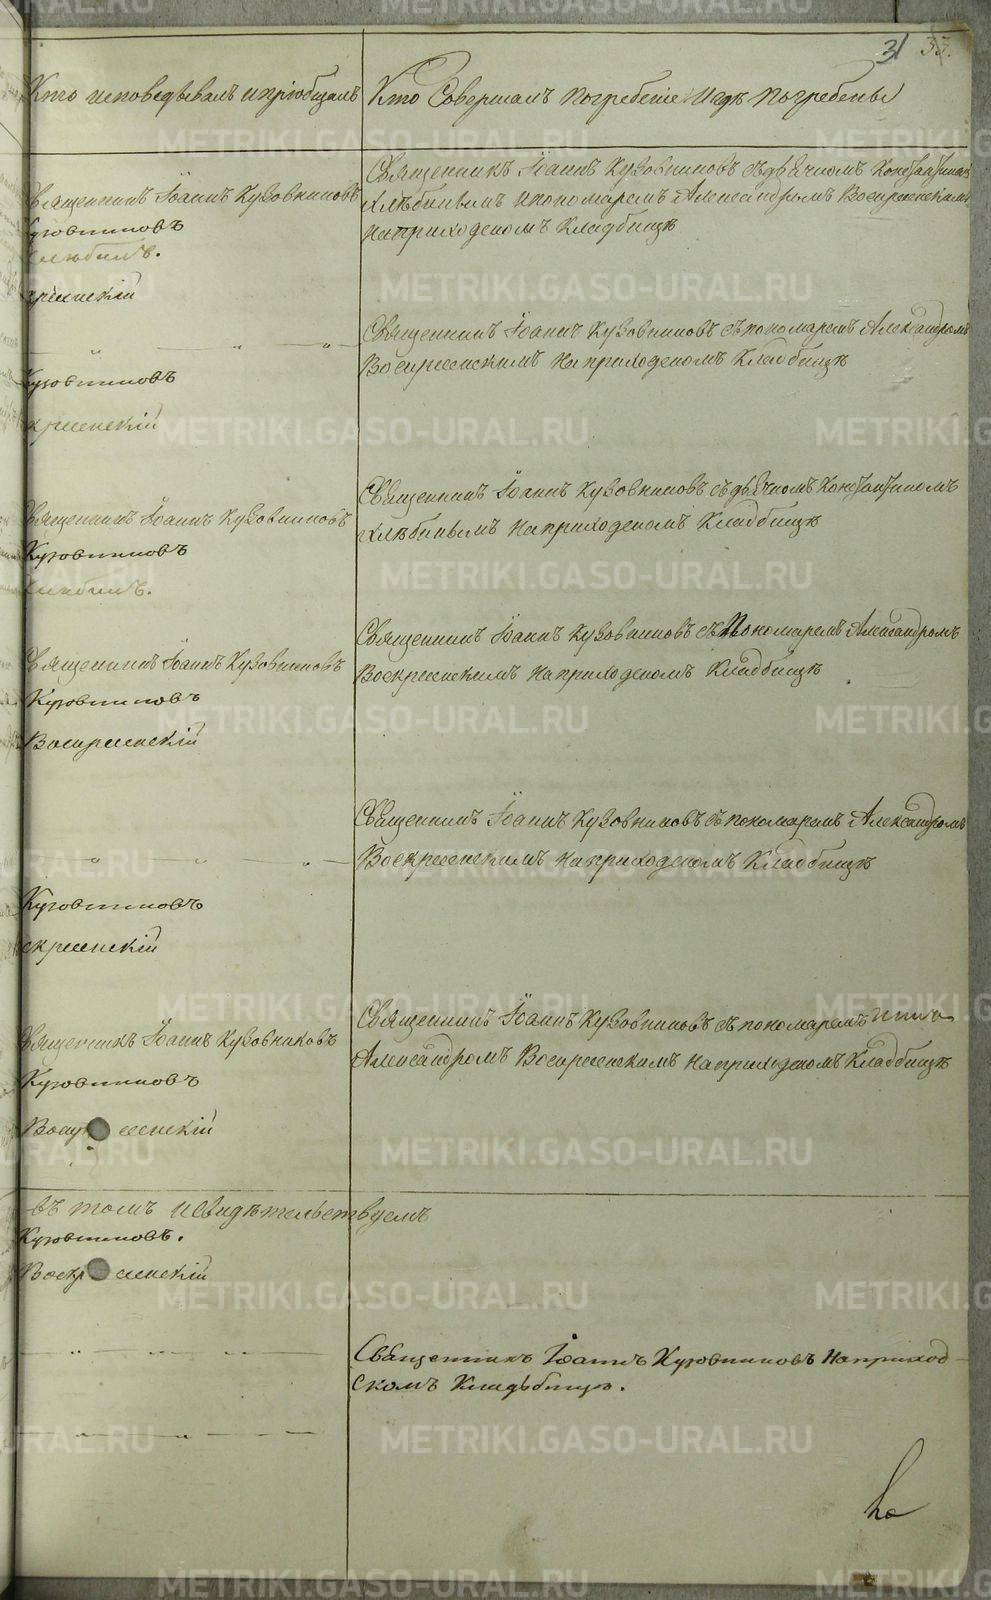 31 33.
Кто исповедывалъ и пріобщалъ
Кто Совершалъ погребеніе и гдѣ погребены
Священникъ Іоаннъ Кузовниковъ
Кузовниковъ
скресенскій
Священникъ Іоаннъ Кузовниковъ съ дьячкомъ Константиномъ
Хлѣбинымъ и пономаремъ Александромъ Воскресенскимъ
на приходскомъ кладбищѣ
Кузовниковъ
кресенскій
Священникъ Іоаннъ Кузовниковъ съ пономаремъ Александромъ
Воскресенскимъ на приходскомъ кладбищѣ
Священникъ Іоаннъ Кузовниковъ
Кузовниковъ
Священникъ Іоаннъ Кузовниковъ съ дьячкомъ Константиномъ
Хлѣбинымъ на приходскомъ кладбищѣ
Священникъ Іоаннъ Кузовниковъ
Кузовниковъ
Воскресенскій
Священникъ Іоаннъ Кузовниковъ съ пономаремъ Александромъ
Воскресенскимъ на приходскомъ кладбищѣ
Кузовниковъ
скресенскій
Священникъ Іоаннъ Кузовниковъ съ пономаремъ Александромъ
Воскресенскимъ на приходскомъ кладбищѣ
Священникъ Іоаннъ Кузовниковъ
Кузовниковъ
Воскресенскій
Священникъ Іоаннъ Кузовниковъ съ пономаремъ
Александромъ Воскресенскимъ на приходскомъ кладбищѣ
въ томъ и свидѣтельствуемъ
Кузовниковъ.
Воскресенскій
Священникъ Іоаннъ Кузовниковъ на приход-
скомъ кладьбищѣ.
METRIKI.GASO-URAL.RU